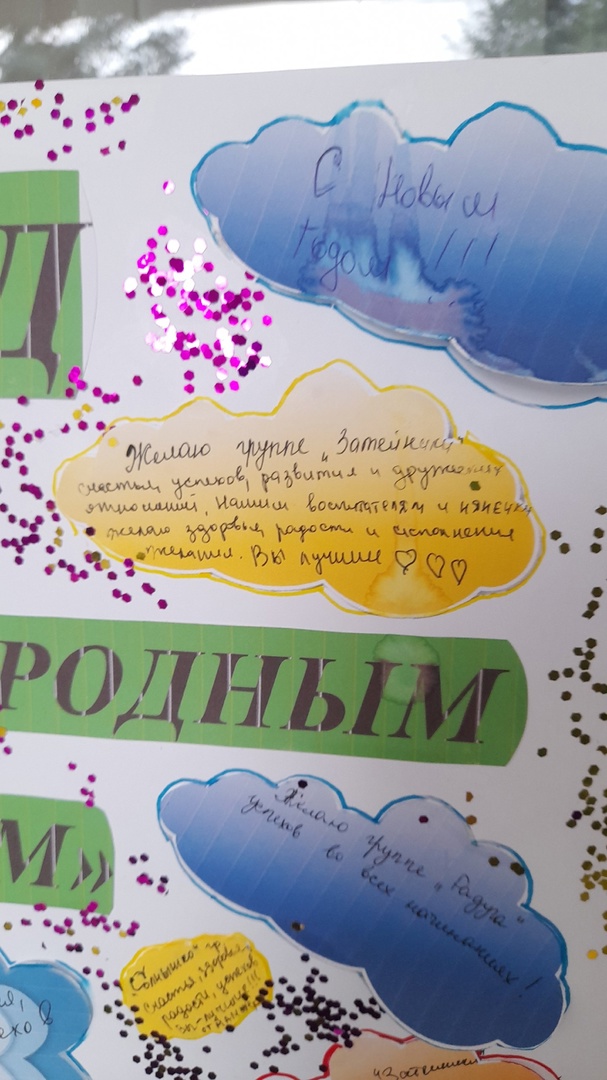 С Новым
Годом !!!
Д
Желаю группе „Затейники"
счастья, успехов, развития и дружеских
отношений. Нашим воспитателям и нянечке
желаю здоровья, радости и исполнения
желаний. Вы лучшие ♡ ♡ ♡
РОДНЫМ
М»
Желаю группе „Радуга"
успехов во всех начинаниях!
"Солнышко" гр.
счастья, здоровья,
радости, успехов
Вы лучшие!!!
"Затейники"